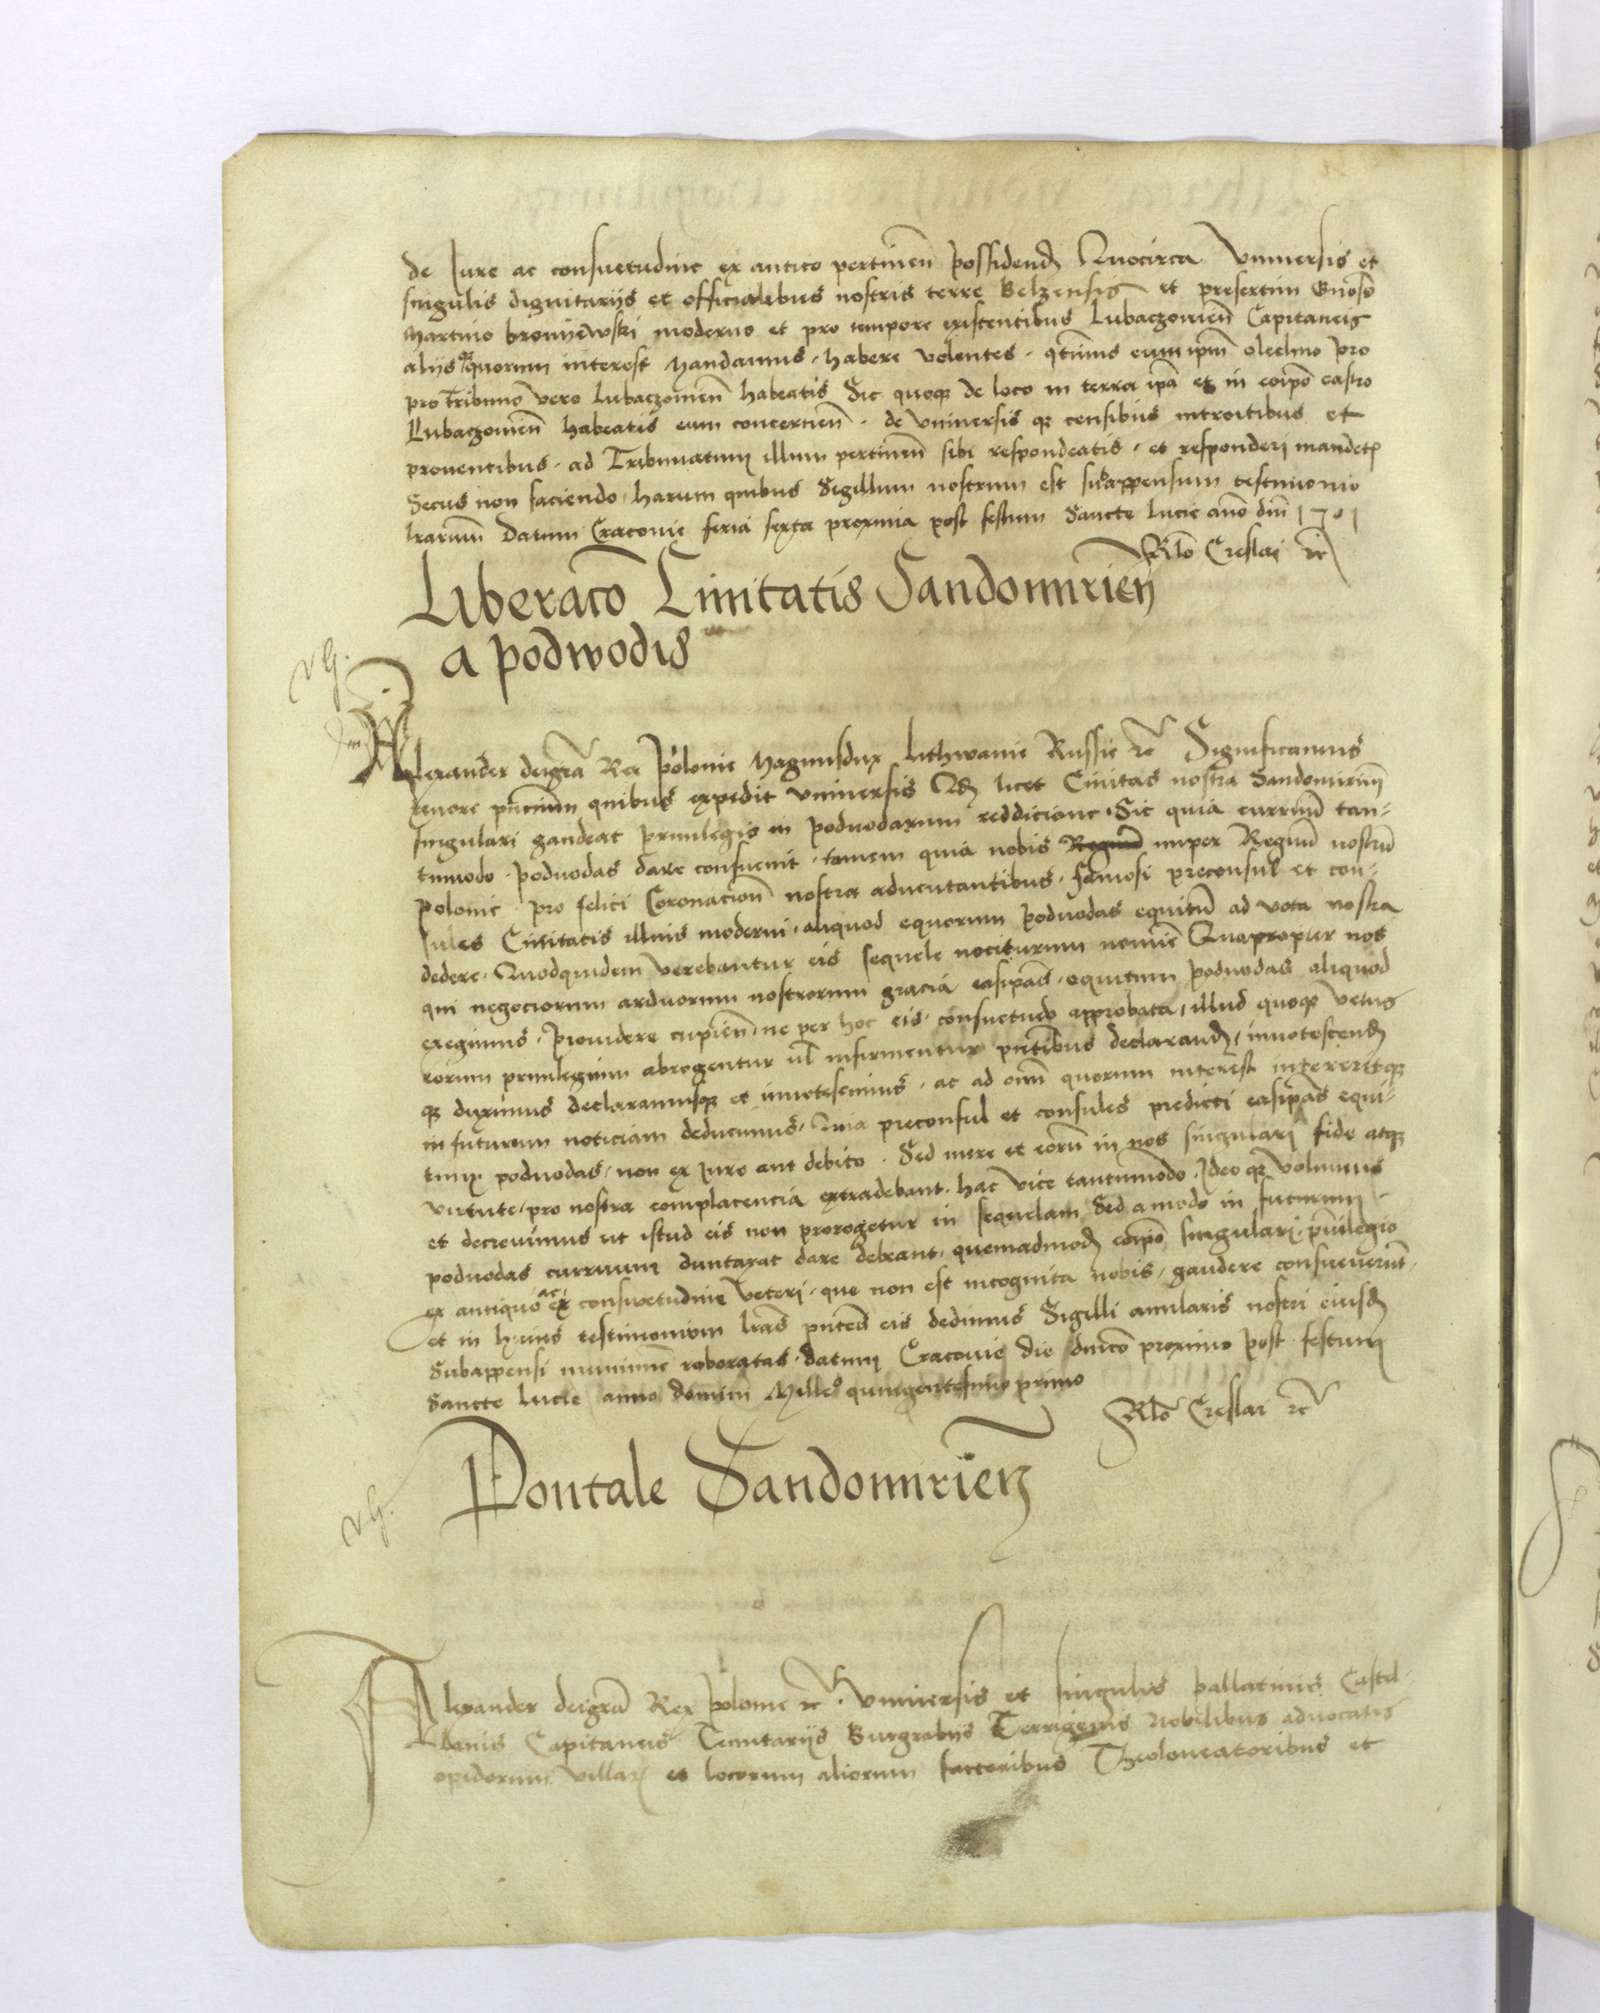 de Jure ac consuetudine ex antico pertinen̄ possidend̄ Quocirca Universis et
singulis dignitariis et officialibus nostris terre Belzensis et presertim Gnōso
Martino broniiewski moderno et pro tempore existentibus Lubaczowien̄ Capitaneis
aliis quorum interest Mandamus, habere volentes, q̄tenus eum ip̄m olechno pro
pro Tribuno vero Lubaczowien̄ habeatis Sic quoqȝ de loco in terra ip̄a et in eoip̄o castro
Lubaczowien̄ habeatis eum concernen̄ . de Universis qȝ censibus introitibus et
proventibus, ad Tribunatum illum pertinen̄ sibi respondeatis, et responderi mandetꝭ
Secus non faciendo, harum quibus Sigillum nostrum est subappensum testimonio
lrarum̄ Datum Cracovie feria sexta proxima post festum Sancte Lucie an̄o dn̄i 1501
Rl̄o Creslai rc̄
Liberac̄o Civitatis Sandomirien̄
a podwodis
vG.
Alexander deigrā Rex Polonie Magnusdux Lithwanie Russie rc̄ Significamus
tenore pn̄cium̄ quibus expedit universis Qđ licet Civitas nostra Sandomirien̄
singulari gaudeat privilegio in podvodarum reddicione, Sic quia curruum̄ tan-
tumodo podvodas dare consuevit, tamen quia nobis nuper Regnum̄ nostrum̄
Polonie pro felici Coronacion̄ nostra adventantibus, famosi preconsul et con-
sules Civitatis illius moderni, aliquod equorum podvodas equitum̄ ad vota nostra
dedere, Quodquidem verebantur eis sequele nociturum nomine Quapropter nos
qui negociorum arduorum nostrorum gracia easip̄as, equitum podvodas aliquod
exegimus, Providere cupien̄, ne per hoc eis consuetudo approbata, illud quoqȝ vetus
eorum privilegium abrogentur ul̄ infirmentur pn̄tibus declarand̄, innotescend̄
qȝ duximus declaramusqȝ et innotescimus, ac ad om̄n quorum interest intereritqȝ
in futurum noticiam deducimus, Quia preconsul et consules predicti easip̄as equi-
tum podvodas, non ex jure aut debito . Sed mere et eorum̄ in nos singulari fide atqȝ
virtute, pro nostra complacencia extradebant, hac vice tantummodo, Ideo qȝ volumus
et decrevimus ut istud eis non prorogetur in sequelam Sed amodo in futurum
podvodas curruum duntaxat dare debeant, quemadmođ eoip̄o singulari p̄vilegio
ex antiquo ac ex consuetudine veteri, que non est incognita nobis, gaudere consueverun̄t
et in huius testimonium lrās pn̄tes eis dedimus Sigilli anularis nostri eiusđ
Subappensi munimine roboratas, datum Cracovie die dn̄ico proximo post festum
Sancte Lucie anno domini Mill̄o quingentesimo primo
Rl̄o Creslai rc̄
Pontale Sandomirien̄
vG.
Alexander deigrā Rex Polonie rc̄ . Universis et singulis Pallatinis Castel-
lanis Capitaneis Tenutariis Burgrabiis Terrigenis Nobilibus advocatis
opidorum Villarꝭ et locorum aliorum factoribus Theoloneatoribus et